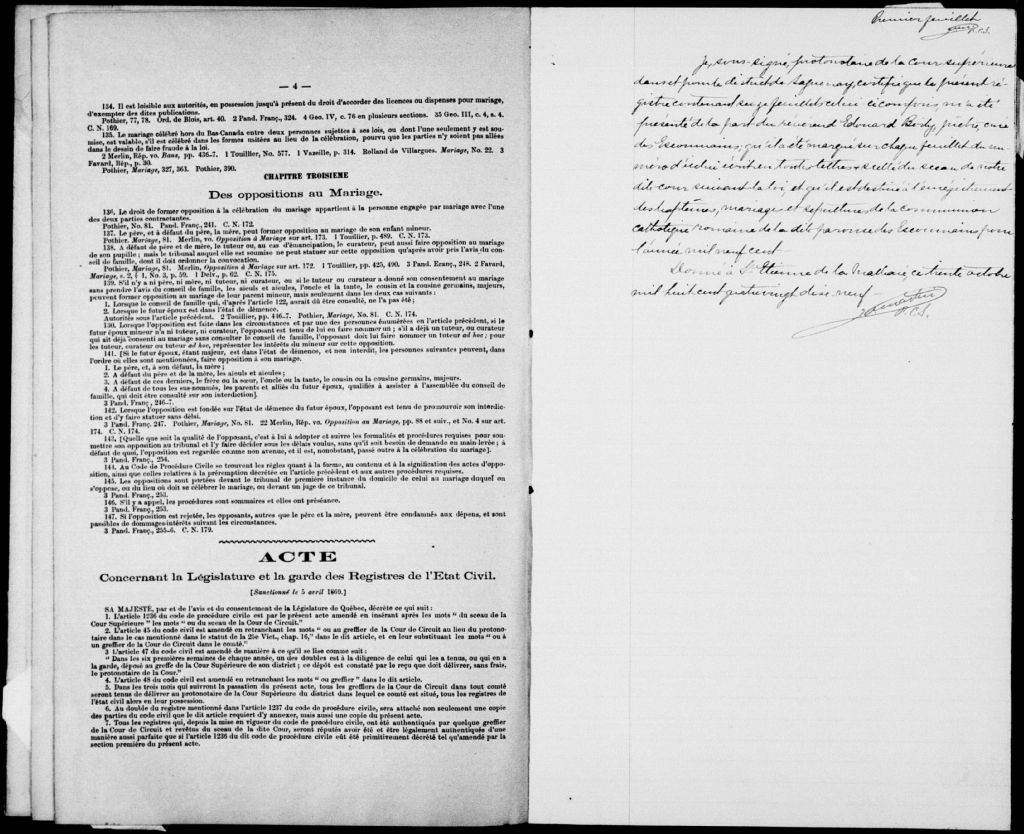 — 4 —
134. Il est loisible aux autorités, en possession jusqu'à présent du droit d'accorder des licences ou dispenses pour mariage,
d'exempter des dites publications.
Pothier, 77, 78. Ord. de Blois, art. 40. 2 Pand. Franç., 324. 4 Geo. IV, c. 76 en plusieurs sections. 35 Geo. III, c. 4, s. 4.
C. N. 169.
135. Le mariage célébré hors du Bas-Canada entre deux personnes sujettes à ses lois, ou dont l'une seulement y est sou-
mise, est valable, s'il est célébré dans les formes usitées au lieu de la célébration, pourvu que les parties n'y soient pas allées
dans le dessein de faire fraude à la loi.
2 Merlin, Rép. vo. Bans, pp. 436-7. 1 Touillier, No. 577. 1 Vazeille, p. 314. Rolland de Villargues. Mariage, No. 22. 3
Favard, Rép., p. 30.
Pothier, Mariage, 327, 363. Pothier, 390.
CHAPITRE TROISIEME
Des oppositions au Mariage.
136. Le droit de former opposition à la célébration du mariage appartient à la personne engagée par mariage avec l'une
des deux parties contractantes.
Pothier, No. 81. Pand. Franç., 241. C. N. 172.
137. Le père, et à défaut du père, la mère, peut former opposition au mariage de son enfant mineur.
Pothier. Mariage, 81. Merlin, vo. Opposition à Mariage sur art. 173. 1 Touillier, p. 489. C. N. 173.
138. A défaut de père et de mère, le tuteur ou, au cas d'émancipation, le curateur, peut aussi faire opposition au mariage
de son pupille ; mais le tribunal auquel elle est soumise ne peut statuer sur cette opposition qu'après avoir pris l'avis du con-
seil de famille, dont il doit ordonner la convocation.
Pothier, Mariage, 81. Merlin, Opposition à Mariage sur art. 172. 1 Touillier, pp. 425, 490. 3 Pand. Franç., 248. 2 Favard,
Mariage, s. 2, § 1, No. 3, p. 59. 1 Delv., p. 62. C. N. 175.
139. S'il n'y a ni père, ni mère, ni tuteur, ni curateur, ou si le tuteur ou curateur a donné son consentement au mariage
sans prendre l'avis du conseil de famille, les aieuls et aieules, l'oncle et la tante, le cousin et la cousine germains, majeurs,
peuvent former opposition au mariage de leur parent mineur, mais seulement dans les deux cas suivants :
1. Lorsque le conseil de famille qui, d'après l'article 122, aurait dû être consulté, ne l'a pas été ;
2. Lorsque le futur époux est dans l'état de démence.
Autorités sous l'article précédent. 2 Touillier, pp. 416-7. Pothier, Mariage, No. 81. C. N. 174.
130. Lorsque l'opposition est faite dans les circonstances et par une des personnes énumérées en l'article précédent, si le
futur époux mineur n'a ni tuteur, ni curateur, l'opposant est tenu de lui en faire nommer un ; s'il a déjà un tuteur, ou curateur
qui ait déjà consenti au mariage sans consulter le conseil de famille, l'opposant doit lui faire nommer un tuteur ad hoc ; pour
les tuteur, curateur ou tuteur ad hoc, représenter les intérêts du mineur sur cette opposition.
141. [Si le futur époux, étant majeur, est dans l'état de démence, et non interdit, les personnes suivantes peuvent, dans
l'ordre où elles sont mentionnées, faire opposition à son mariage.
1. Le père, et, à son défaut, la mère ;
2. A défaut du père et de la mère, les aieuls et aieules ;
3. A défaut de ces derniers, le frère ou la sœur, l'oncle ou la tante, le cousin ou la cousine germains, majeurs.
4. A défaut de tous les sus-nommés, les parents et alliés du futur époux, qualifiés à assister à l'assemblée du conseil de
famille, qui doit être consulté sur son interdiction].
3 Pand. Franç., 246-7.
142. Lorsque l'opposition est fondée sur l'état de démence du futur époux, l'opposant est tenu de promouvoir son interdic-
tion et d'y faire statuer sans délai.
3 Pand. Franç. 247. Pothier, Mariage, No. 81. 22 Merlin, Rép. vo. Opposition au Mariage, pp. 88 et suiv., et No. 4 sur art.
174. C. N. 174.
143. [Quelle que soit la qualité de l'opposant, c'est à lui à adopter et suivre les formalités et procédures requises pour sou-
mettre son opposition au tribunal et l'y faire décider sous les délais voulus, sans qu'il soit besoin de demande en main-levée ; à
défaut de quoi, l'opposition est regardée comme non avenue, et il est, nonobstant, passé outre à la célébration du mariage].
3 Pand. Franç., 254.
144. Au Code de Procédure Civile se trouvent les règles quant à la forme, au contenu et à la signification des actes d'oppo-
sition, ainsi que celles relatives à la préremption décrétée en l'article précédent et aux autres procédures requises.
145. Les oppositions sont portées devant le tribunal de première instance du domicile de celui au mariage duquel on
s'oppose, ou du lieu où doit se célébrer le mariage, ou devant un juge de ce tribunal.
3 Pand. Franç., 253.
146. S'il y a appel, les procédures sont sommaires et elles ont préséance.
3 Pand. Franç., 253.
147. Si l'opposition est rejetée, les opposants, autres que le père et la mère, peuvent être condamnés aux dépens, et sont
passibles de dommages-intérêts suivant les circonstances.
3 Pand. Franç., 255-6. C. N. 179.
ACTE
Concernant la Législature et la garde des Registres de l'Etat Civil.
[Sanctionné le 5 avril 1869.]
SA MAJESTÉ, par et de l'avis et du consentement de la Législature de Québec, décrète ce qui suit :
1. L'article 1236 du code de procédure civile est par le présent acte amendé en insérant après les mots " du sceau de la
Cour Supérieure " les mots " ou du sceau de la Cour de Circuit."
2. L'article 45 du code civil est amendé en retranchant les mots " ou an greffier de la Cour de Circuit au lieu du protono-
taire dans le cas mentionné dans le statut de la 25e Vict., chap. 16," dans le dit article, et en leur substituant les mots " ou à
un greffier de la Cour de Circuit dans le comté."
3 L'article 47 du code civil est amendé de manière à ce qu'il se lise comme suit :
" Dans les six premières semaines de chaque année, un des doubles est à la diligence de celui qui les a tenus, ou qui en a
la garde, déposé au greffe de la Cour Supérieure de son district ; ce dépôt est constaté par le reçu que doit délivrer, sans frais,
le protonotaire de la Cour."
4. L'article 48 du code civil est amendé en retranchant les mots " ou greffier " dans le dit article.
5. Dans les trois mois qui suivront la passation du présent acte, tous les greffiers de la Cour de Circuit dans tout comté
seront tenus de délivrer au protonotaire de la Cour Supérieure du district dans lequel ce comté est situé, tous les registres de
l'état civil alors en leur possession.
6. Au double du registre mentionné dans l'article 1237 du code de procédure civile, sera attaché non seulement une copie
des parties du code civil que le dit article requiert d'y annexer, mais aussi une copie du présent acte.
7. Tous les registres qui, depuis la mise en vigueur du code de procédure civile, ont été authentiqués par quelque greffier
de la Cour de Circuit et revêtus du sceau de la dite Cour, seront réputés avoir été et être légalement authentiqués d'une
manière aussi parfaite que si l'article 1236 du dit code de procédure civile eût été primitivement décrété tel qu'amendé par la
section première du présent acte.
Premier feuillet
P.C.S.
Je, sous-signé, protonotaire de la Cour supérieure
dans et pour le district de Saguenay, certifie que le présent ré-
gistre contenant seize feuillets celui ci compris, m'a été
présenté de la part du révérend Edouard Boily, prêtre, curé
des Escoumains, qu'il a été marqué sur chaque feuillet du nu-
méro d'icelui écrit en toutes lettres, scellé du sceau de notre
dite cour suivant la loi, et qu'il est destiné à l'enregistrement
des baptêmes, mariages et sépultures de la communion
catholique romaine de la dite paroisse des Escoumains pour
l'année mil neuf cent.
Donné à St. Etienne de la Malbaie, ce trente octobre
mil huit cent quatre vingt dix neuf
P.C.S.